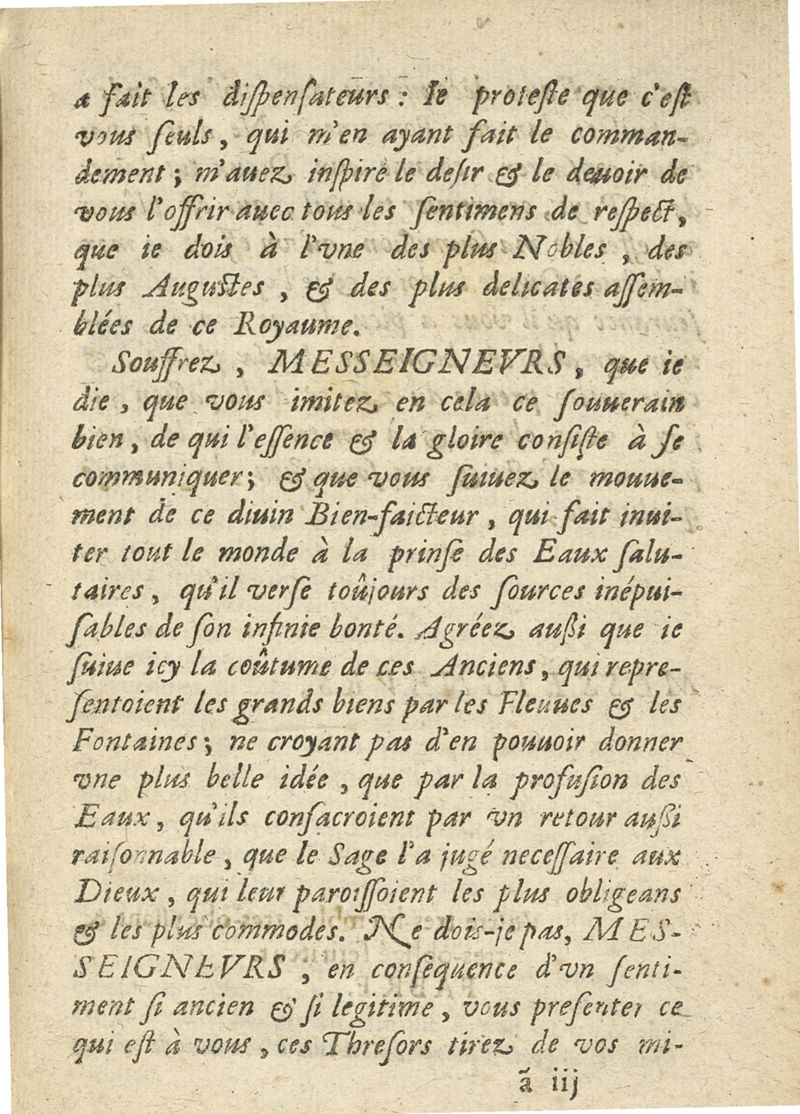 a fait les diſpenſateurs : Ie proteſte que c'eſt
vous ſeuls, qui m'en ayant fait le comman-
dement ; m'auez inſpiré le deſir & le deuoir de
vous l'offrir auec tous les ſentimens de reſpect,
que ie dois à l'vne des plus Nobles, des
plus Auguſtes, & des plus delicates aſſem-
blées de ce Royaume.
Souffrez, MESSEIGNEVRS, que ie
die, que vous imitez en cela ce ſouuerain
bien, de qui l'eſſence & la gloire conſiſte à ſe
communiquer; & que vous ſuiuez le mouue-
ment de ce diuin Bien-faicteur, qui fait inui-
ter tout le monde à la prinſe des Eaux ſalu-
taires, qu'il verſe toûjours des ſources inépui-
ſables de ſon infinie bonté. Agréez auſſi que ie
ſuiue icy la coûtume de ces Anciens, qui repre-
ſentoient les grands biens par les Fleuues & les
Fontaines; ne croyant pas d'en pouuoir donner
vne plus belle idée, que par la profuſion des
Eaux, qu'ils conſacroient par vn retour auſſi
raiſonnable, que le Sage l'a jugé neceſſaire aux
Dieux, qui leur paroiſſoient les plus obligeans
& les plus commodes. Ne dois-je pas, MES-
SEIGNEVRS, en conſequence d'vn ſenti-
ment ſi ancien & ſi legitime, vous preſenter ce
qui eſt à vous, ces Threſors tirez de vos mi-
ã iij